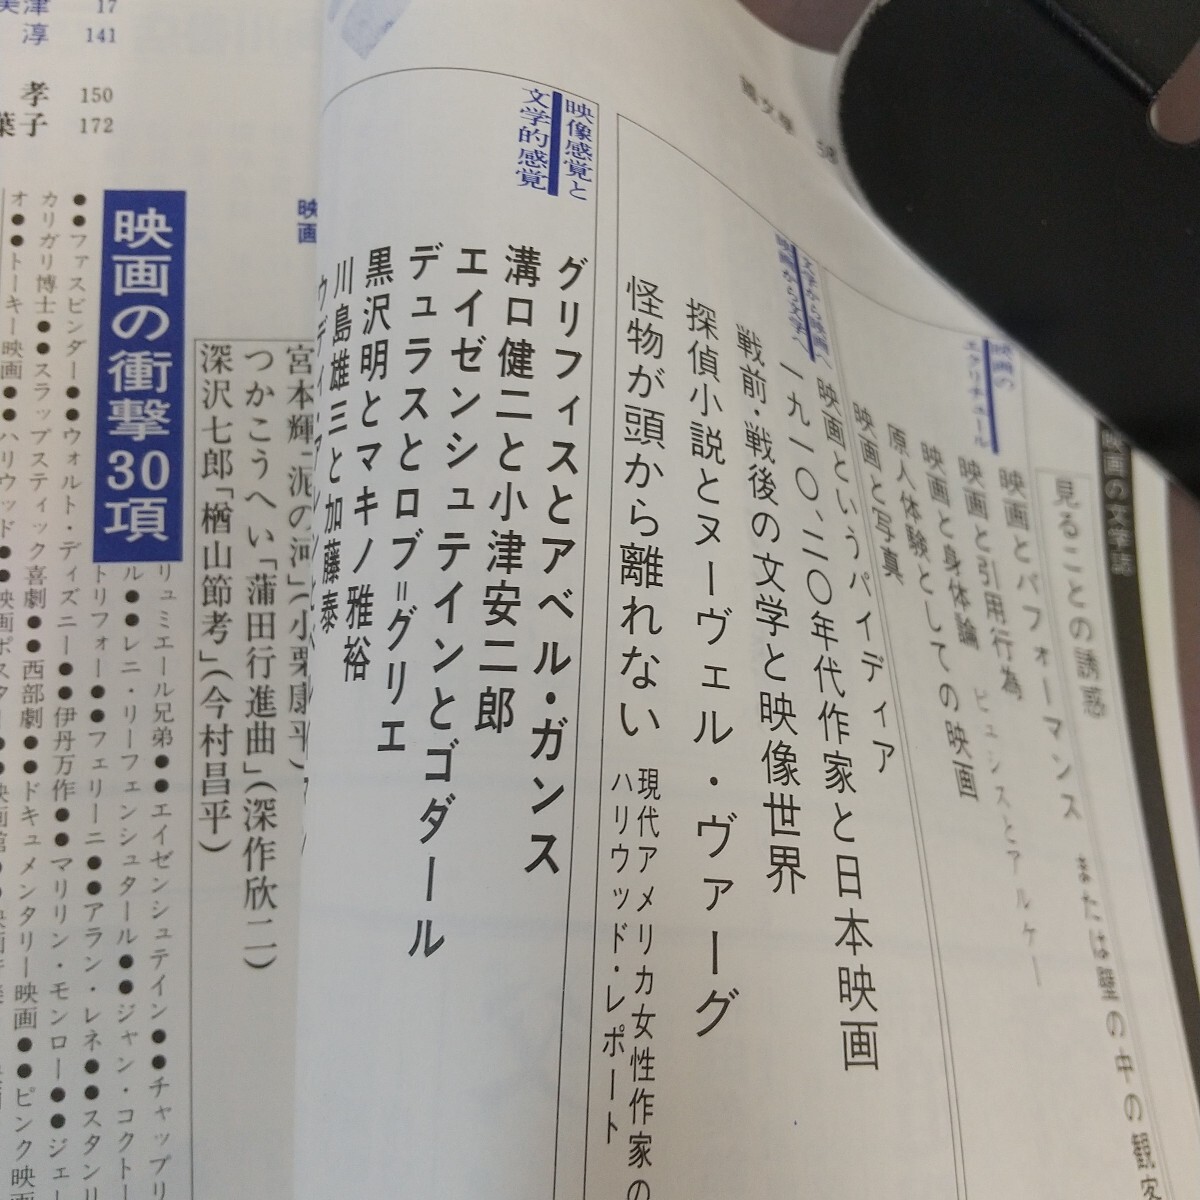 國文學
58
映画の文学誌
見ることの誘惑 または壁の中の観客
映画の
エクリチュール
映画とパフォーマンス
映画と引用行為 ピュシスとアルケー
映画と身体論
原人体験としての映画
映画と写真
映画というパイディア
文学から映画へ
映画から文学へ
一九一〇、二〇年代作家と日本映画
戦前・戦後の文学と映像世界
探偵小説とヌーヴェル・ヴァーグ
怪物が頭から離れない 現代アメリカ女性作家の
ハリウッド・レポート
映像感覚と
文学的感覚
グリフィスとアベル・ガンス
溝口健二と小津安二郎
エイゼンシュテインとゴダール
デュラスとロブ＝グリエ
黒沢明とマキノ雅裕
川島雄三と加藤泰
映画
宮本輝「泥の河」(小栗康平)
つかこうへい「蒲田行進曲」(深作欣二)
深沢七郎「楢山節考」(今村昌平)
映画の衝撃30項
リュミエール兄弟●●エイゼンシュテイン●●チャップリ
ル●●レニ・リーフェンシュタール●●ジャン・コクトー
トリフォー●●フェリーニ●●アラン・レネ●●スタンリ
●●ファスビンダー●●ウォルト・ディズニー●●伊丹万作●●マリリン・モンロー●●ジェー
カリガリ博士●●スラップスティック喜劇●●西部劇●●ドキュメンタリー映画●●ピンク映画
オ●●トーキー映画●●ハリウッド●●映画ポスター●●映画館
美津 17
淳 141
孝 150
葉子 172